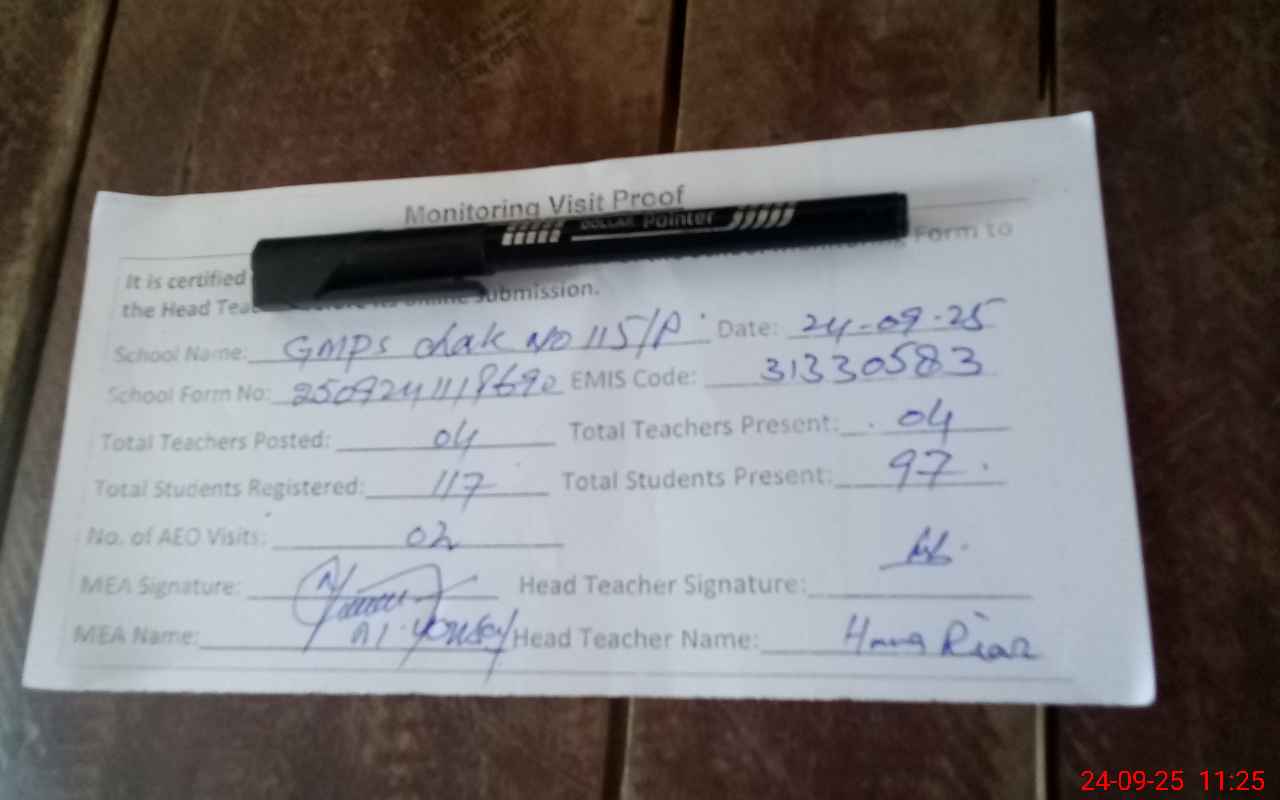 Monitoring Visit Proof
DOLLAR Pointer
It is certified Form to
the Head submission.
School Name: GMPS chak No 115/P Date: 24-09-25
School Form No: EMIS Code: 31330583
Total Teachers Posted: 04 Total Teachers Present: 04
Total Students Registered: 117 Total Students Present: 97
No. of AEO Visits: 02
MEA Signature: Head Teacher Signature:
MEA Name: Head Teacher Name: Riaz
24-09-25 11:25